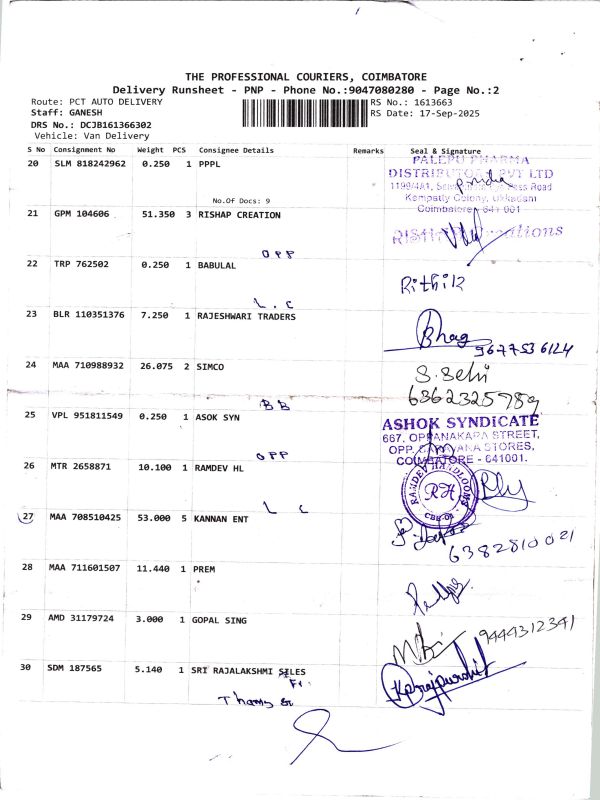 THE PROFESSIONAL COURIERS, COIMBATORE
Delivery Runsheet - PNP - Phone No.:9047080280 - Page No.:2
Route: PCT AUTO DELIVERY
RS No.: 1613663
Staff: GANESH
RS Date: 17-Sep-2025
DRS No.: DCJB161366302
Vehicle: Van Delivery
S No Consignment No Weight PCS Consignee Details Remarks Seal & Signature
20 SLM 818242962 0.250 1 PPPL
PALEPU PHARMA
DISTRIBUTORS PVT LTD
Road
Colony, Ukkadam
No.Of Docs: 9
Coimbatore 641 001
21 GPM 104606 51.350 3 RISHAP CREATION
OPP
22 TRP 762502 0.250 1 BABULAL
Rithik
L.C
23 BLR 110351376 7.250 1 RAJESHWARI TRADERS
Bhag
9677536124
24 MAA 710988932 26.075 2 SIMCO
S. Selvi
6362325789
BB
25 VPL 951811549 0.250 1 ASOK SYN
ASHOK SYNDICATE
667, OPPANAKARA STREET,
OPP. STORES,
COIMBATORE - 641001.
OPP
26 MTR 2658871 10.100 1 RAMDEV HL
RAMDEV HANDLOOMS
RH
CBE-01
L C
27 MAA 708510425 53.000 5 KANNAN ENT
6382810021
28 MAA 711601507 11.440 1 PREM
29 AMD 31179724 3.000 1 GOPAL SING
9444312341
30 SDM 187565 5.140 1 SRI RAJALAKSHMI SILES